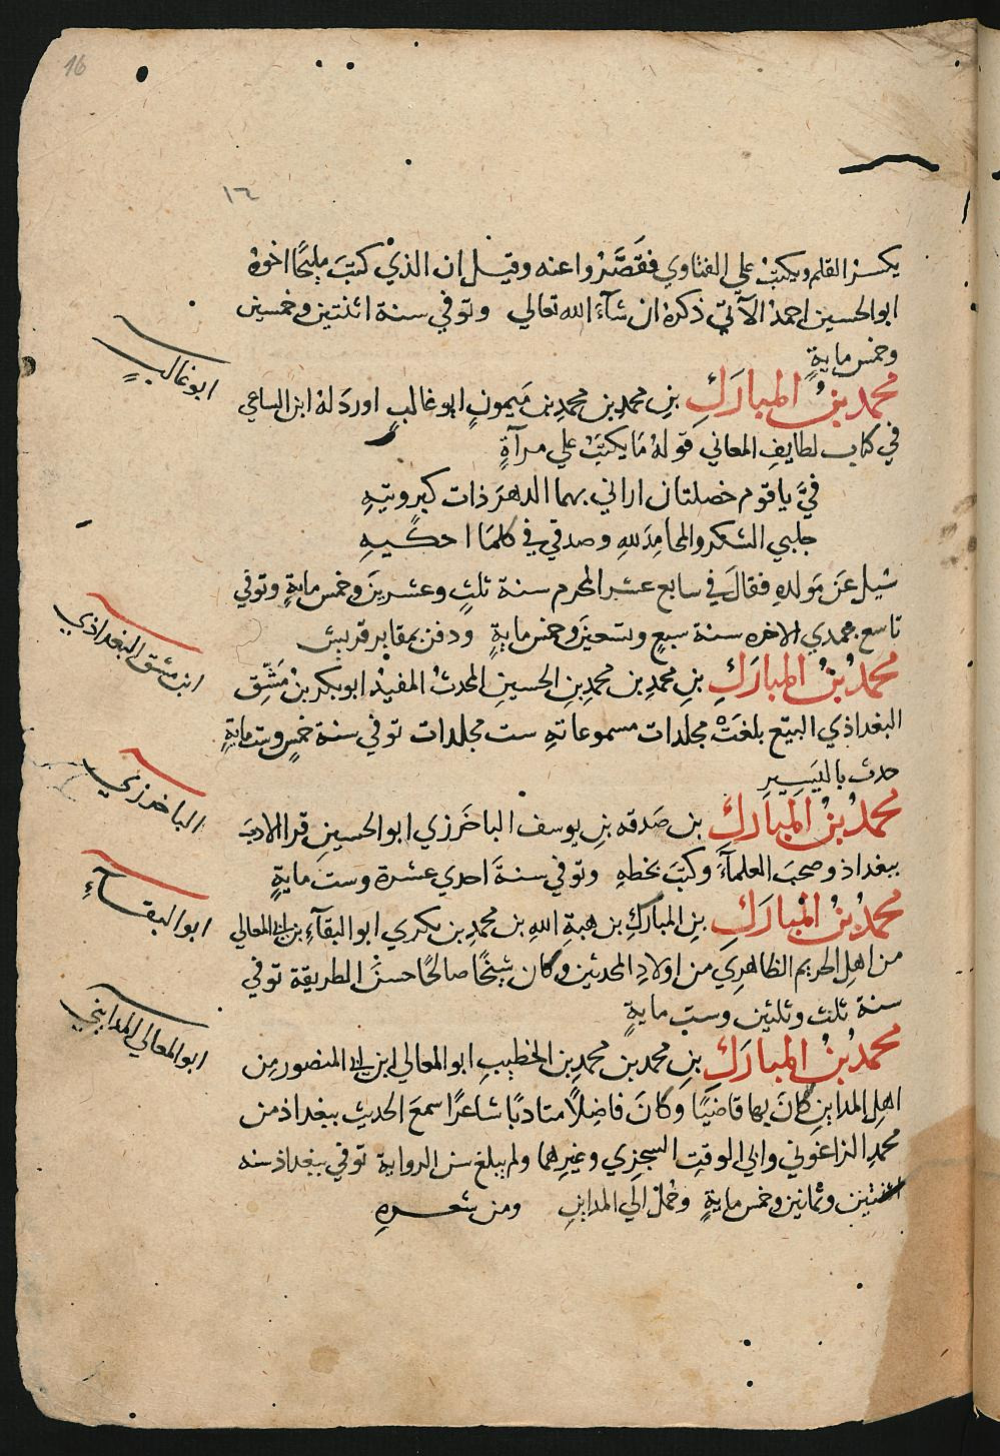 16
١٦
يكسر القلم ويكتبُ علي الفتاوي فقَصَّرُوا عنه وقيل ان الذيْ كتبَ مليحًا اخوهُ
ابوالحسين احمدُ الآتي ذكرهُ ان شآءَ الله تعالي وتوفي سنة اثنتين وخمسين
وخمس مايةٍ
محمد بنُ المبارَكِ بنِ محمدِ بن محمدِ بن مَيمونٍ ابو غالبٍ اوردَ لهُ ابن الساعي
في كتاب لطايفِ المعاني قولهُ مَا يكتبُ علي مرآةٍ
فيَّ ياقوم خصلتان اراني بهما الدهرَ ذات كبرٍ وتيهِ
جلبي الشكر والمحامِدَ للهِ وصدقي في كلمَا احكيهِ
سُيل عَن مَولدِهِ فقالَ في سابع عشر المحرم سنة ثلثٍ وعشرينَ وخمس مايةٍ وتوفي
تاسع جمدي الاخره سنة سبعٍ وتسعينَ وخمس مايةٍ ودفن بمقابر قريش
محمدُ بنُ المبارَكِ بنِ محمدِ بن محمدِ بنِ الحسينِ المحدثُ المفيدُ ابو بكر بنُ مَشِّقٍ
البغداذي البيّع بلغَتْ مجلدات مسموعاتهِ ست مجلدات توفي سنة خمسٍ وست مايةٍ
حدث باليَسِيرِ
محمدُ بنُ المبارَكِ بن صَدقه بنِ يوسف الباخَرزي ابو الحسينِ قرا الادبَ
ببغداذ وصحبَ العلمآءَ وكتبَ بخطهِ وتوفي سنةَ احدي عشرة وست مايةٍ
محمدُ بنُ المبارَكِ بنِ المباركِ بن هبةِ اللهِ بن محمدِ بن بكري ابو البقآءِ بن ابي المعالي
من اهلِ الحريم الظاهريِ من اولادِ المحدثين وكان شيخًا صالحًا حسنَ الطريقة توفي
سنة ثلث وثلثين وست مايةٍ
محمدُ بنُ المبارَكِ بنِ محمد بن محمدِ بن الخطيبِ ابو المعالي ابن ابي المنصور مِن
اهلِ المداينِ كانَ بها قاضيًا وكانَ فاضِلًا متادبًا شاعرًا سمعَ الحديث ببغداذ من
محمدٍ الزاغوني وابي الوقتِ السجزي وغيرِهما ولم يبلغ سن الرواية توفي ببغداذ سنه
اثنتين وثمانين وخمس مايةٍ وحُمل الي المداينِ ومن شعرهِ
ابو غالبٍ
ابن مشق البغداذي
الباخرزي
ابو البقآءِ
ابو المعالي المدايني